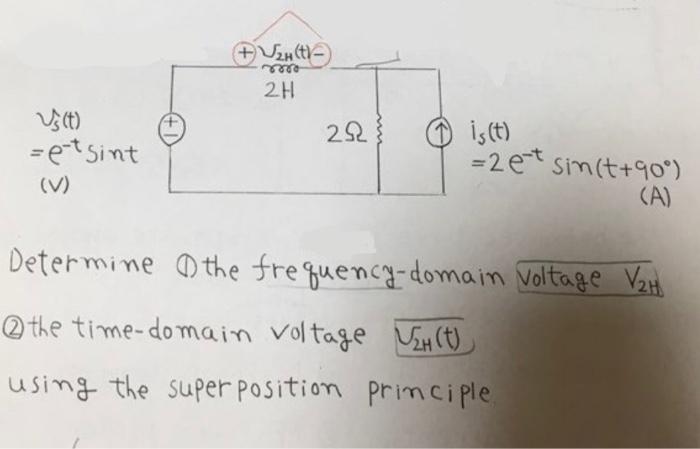 + V2H(t) −
2H
Vs(t)
= e^-t sint
(V)
+ −
2Ω
is(t)
= 2 e^-t sin(t+90°)
(A)
Determine ① the frequency-domain voltage V2H
② the time-domain voltage V2H(t)
using the superposition principle.